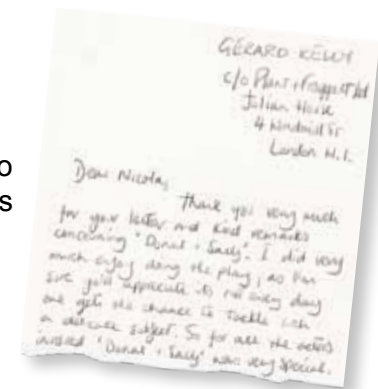 o
s
GERARD KELLY
c/o Plant & Froggatt Ltd
Julian House
4 Windmill St
London W.1.
Dear Nicola,
Thank you very much
for your letter and kind remarks
concerning "Donal & Sally". I did very
much enjoy doing the play, as I'm
sure you'll appreciate its not every day
one gets the chance to tackle such
a delicate subject. So for all the actors
involved "Donal & Sally" was very special.